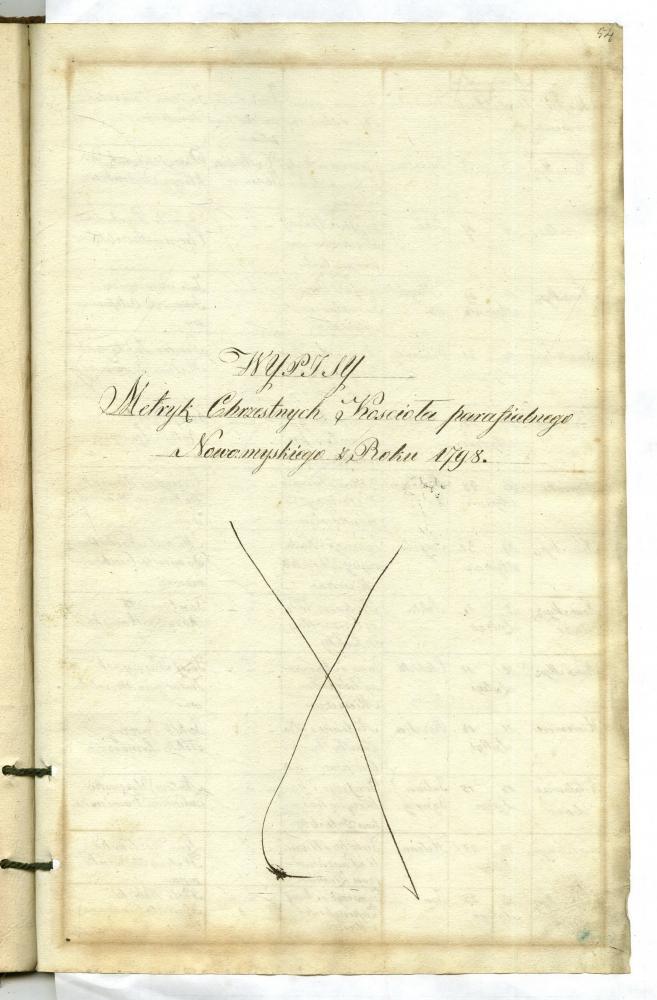 54
WYPISY
Metryk Chrzestnych Kościoła parafialnego
Nowomyskiego z Roku 1798.